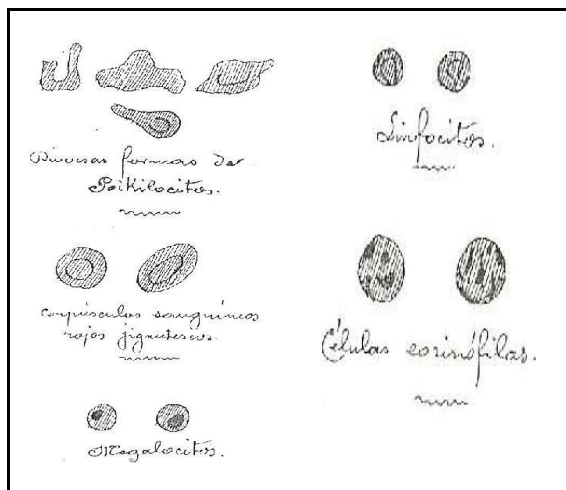 Diversas formas de
Poikilocitos.
Corpúsculos sanguíneos
rojos jigantescos.
Megalocitos.
Linfocitos.
Células eosinófilas.